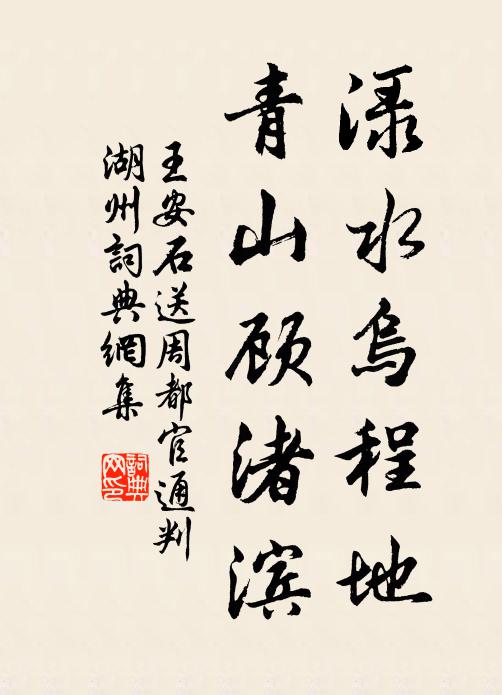 渌水乌程地
青山顾渚滨
王安石送周都官通判
湖州詞典網集
詞典
网印